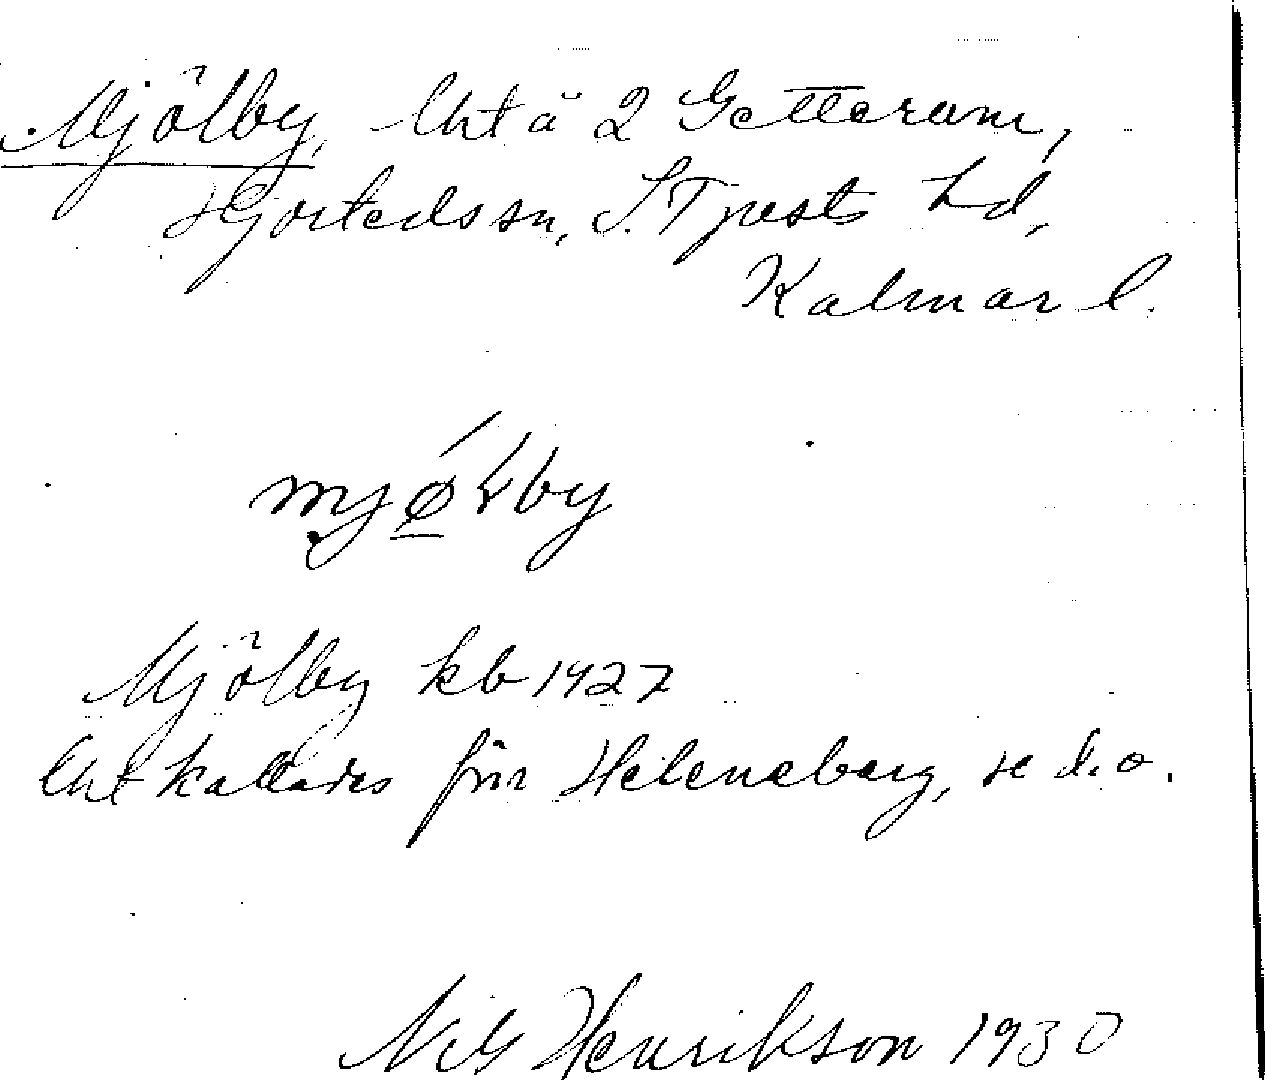 Mjölby, lht å 2 Getterum,
Hjorteds sn, S. Tjusts hd,
Kalmar l.
mjø̱lby
Mjölby kb 1927
lht kallades förr Heleneberg, se d.o.
Nils Henrikson 1930